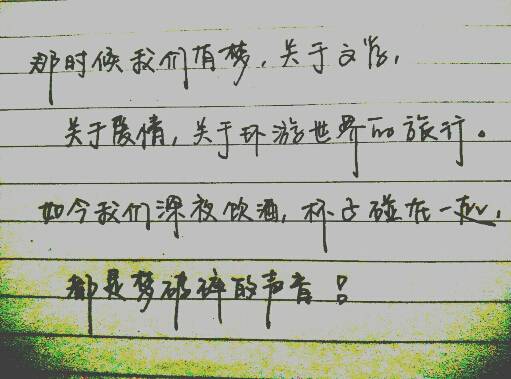 那时候我们有梦，关于文学，
关于爱情，关于环游世界的旅行。
如今我们深夜饮酒，杯子碰在一起，
都是梦破碎的声音！